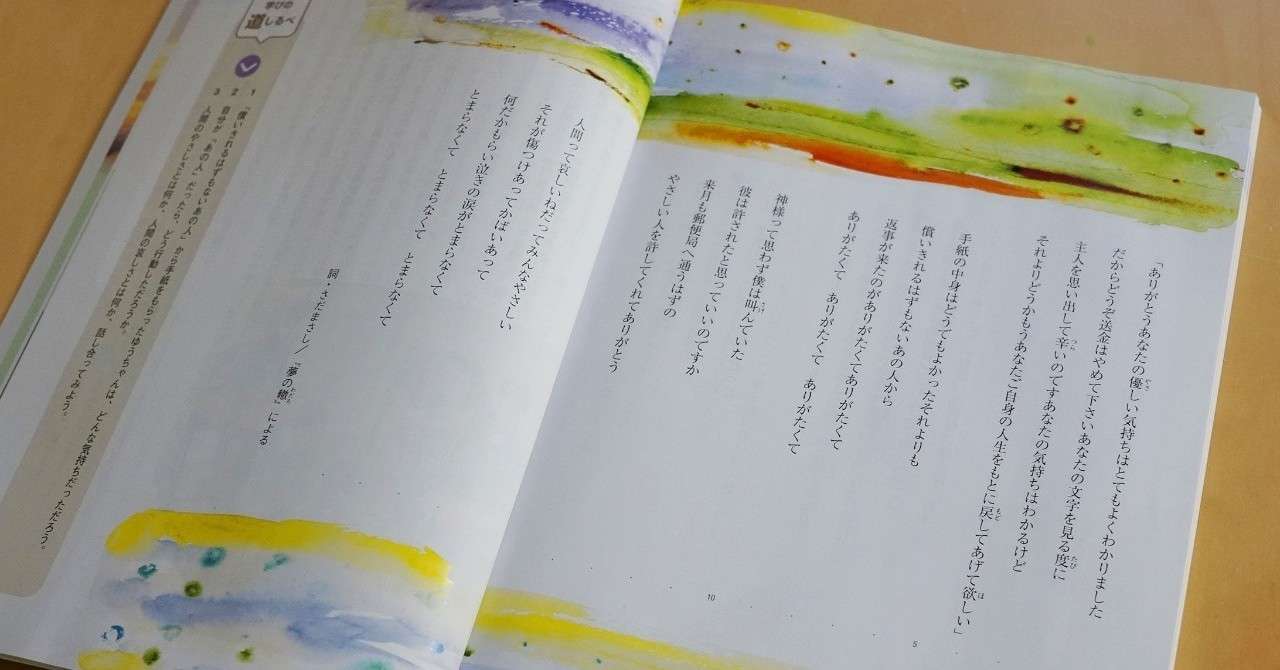 「ありがとうあなたの優しい気持ちはとてもよくわかりました
だからどうぞ送金はやめて下さいあなたの文字を見る度に
主人を思い出して辛いのですあなたの気持ちはわかるけど
それよりどうかもうあなたご自身の人生をもとに戻してあげて欲しい」
手紙の中身はどうでもよかったそれよりも
償いきれるはずもないあの人から
返事が来たのがありがたくてありがたくて
ありがたくて ありがたくて ありがたくて
神様って思わず僕は叫んでいた
彼は許されたと思っていいのですか
来月も郵便局へ通うはずの
やさしい人を許してくれてありがとう
10
5
人間って哀しいねだってみんなやさしい
それが傷つけあってかばいあって
何だかもらい泣きの涙がとまらなくて
とまらなくて とまらなくて とまらなくて
詞・さだまさし/『夢の轍』による
学びの
道しるべ
1 「償いきれるはずもないあの人」から手紙をもらったゆうちゃんは、どんな気持ちだっただろう。
2 自分が「あの人」だったら、どう行動しただろうか。
3 人間のやさしさとは何か、人間の哀しさとは何か、話し合ってみよう。